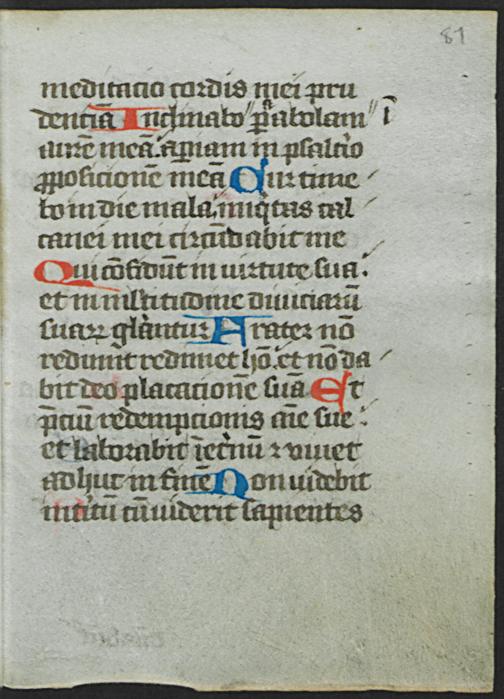 81
meditacio cordis mei pru
dentiā Inclinabo" p̄abolam" ī
aurē meā. apiam in psalt̄io
ꝓposicionē meā Cur time
bo in die mala, iniq̇tas cal
canei mei circūdabit me
Qui cōfidūt in uirtute sua.
et in multitudine diuiciarū
suaꝝ gl̄antur Frater nō
redimit redimet hō. et nō da
bit deo placacionē suā Et
p̄ciū redempcionis aīe sue.
et laborabit ī et̄nū ⁊ viuet
adhuc in finē Non uidebit
int̄itū cū uiderit sapientes